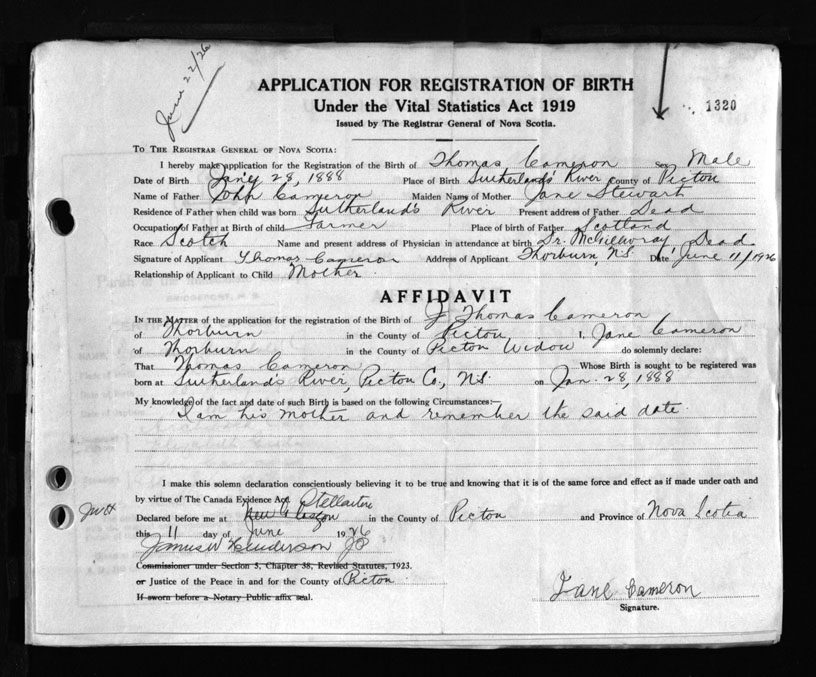 June 22/26
APPLICATION FOR REGISTRATION OF BIRTH
Under the Vital Statistics Act 1919
1320
Issued by The Registrar General of Nova Scotia.
TO THE REGISTRAR GENERAL OF NOVA SCOTIA:
I hereby make application for the Registration of the Birth of Thomas Cameron Sex Male
Date of Birth Jan'y 28, 1888 Place of Birth Sutherland's River County of Picton
Name of Father John Cameron Maiden Name of Mother Jane Stewart
Residence of Father when child was born Sutherland's River Present address of Father Dead
Occupation of Father at Birth of child Farmer Place of birth of Father Scotland
Race Scotch Name and present address of Physician in attendance at birth Dr. McGillivray, Dead
Signature of Applicant Thomas Cameron Address of Applicant Thorburn, N.S. Date June 11/1926
Relationship of Applicant to Child Mother.
AFFIDAVIT
IN THE MATTER of the application for the registration of the Birth of J Thomas Cameron
of Thorburn in the County of Picton I, Jane Cameron
of Thorburn in the County of Picton Widow do solemnly declare:
That Thomas Cameron Whose Birth is sought to be registered was
born at Sutherland's River, Picton Co., N.S. on Jan. 28, 1888
My knowledge of the fact and date of such Birth is based on the following Circumstances:—
I am his mother and remember the said date.
I make this solemn declaration conscientiously believing it to be true and knowing that it is of the same force and effect as if made under oath and
by virtue of The Canada Evidence Act. Stellarton
JWH Declared before me at New Glasgow in the County of Picton and Province of Nova Scotia
this 11 day of June 1926
James W Henderson JP
Commissioner under Section 3, Chapter 38, Revised Statutes, 1923.
or Justice of the Peace in and for the County of Picton.
If sworn before a Notary Public affix seal.
Jane Cameron
Signature.